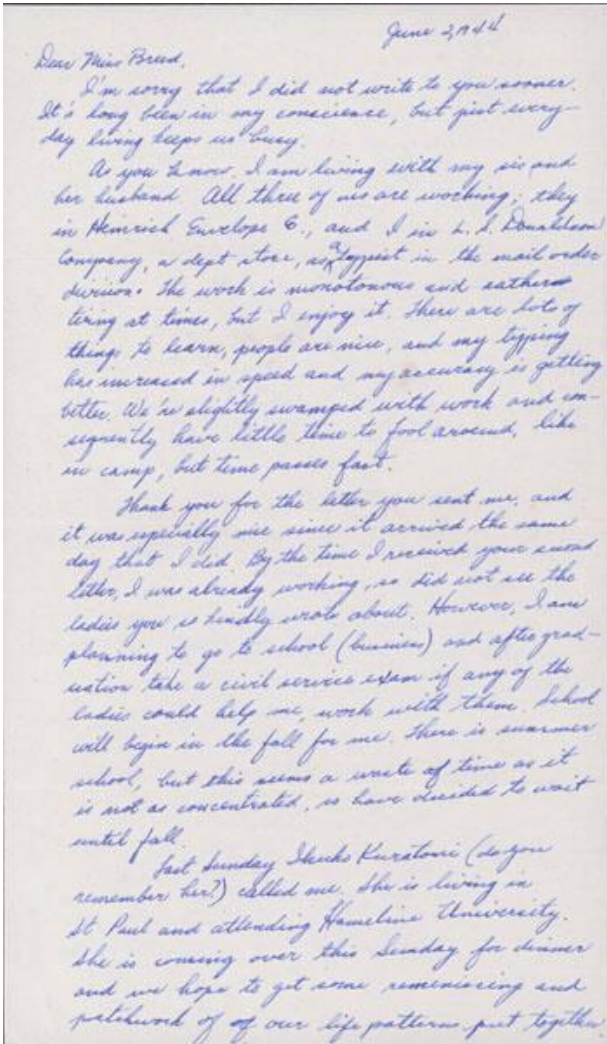 June 2, 1944
Dear Miss Breed,
I'm sorry that I did not write to you sooner.
It's long been in my conscience, but just every-
day living keeps us busy.
As you know, I am living with my sis and
her husband All three of us are working; they
in Heinrich Envelope C., and I in L. S. Donaldson
Company, a dept store, as a typist in the mail order
division. The work is monotonous and rather
tiring at times, but I enjoy it. There are lots of
things to learn, people are nice, and my typing
has increased in speed and my accuracy is getting
better. We're slightly swamped with work and con-
sequently have little time to fool around, like
in camp, but time passes fast.
Thank you for the letter you sent me, and
it was especially nice since it arrived the same
day that I did. By the time I received your second
letter, I was already working, so did not see the
ladies you so kindly wrote about. However, I am
planning to go to school (business) and after grad-
uation take a civil service exam if any of the
ladies could help me, work with them. School
will begin in the fall for me. There is summer
school, but this seems a waste of time as it
is not as concentrated, so have decided to wait
until fall.
Last Sunday Kuratomi (do you
remember her?) called me. She is living in
St Paul and attending Hameline University.
She is coming over this Sunday for dinner
and we hope to get some remeniscing and
patchwork of of our life patterns put together